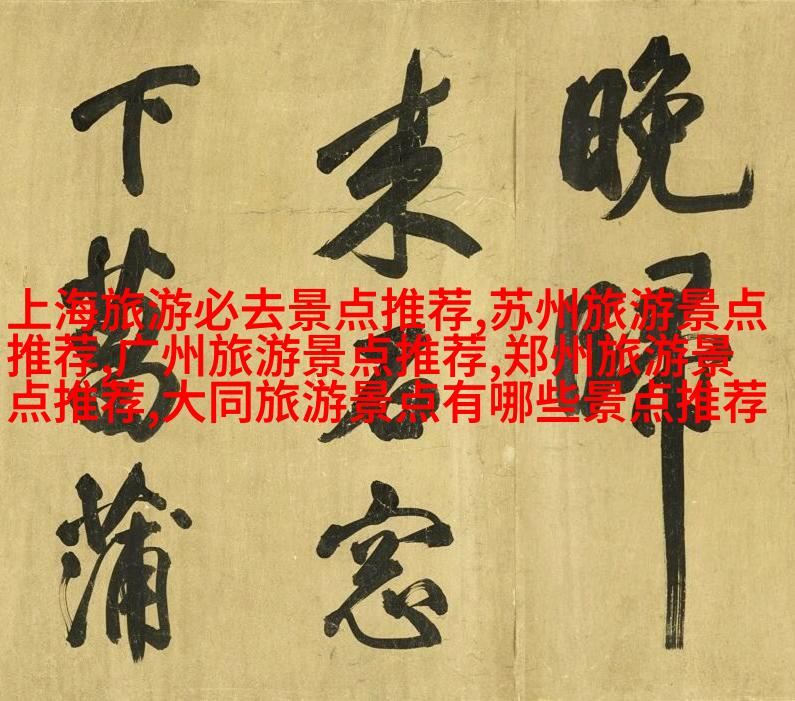 上海旅游必去景点推荐,苏州旅游景点
推荐,广州旅游景点推荐,郑州旅游景
点推荐,大同旅游景点有哪些景点推荐
晚歸
来窓
下菖蒲